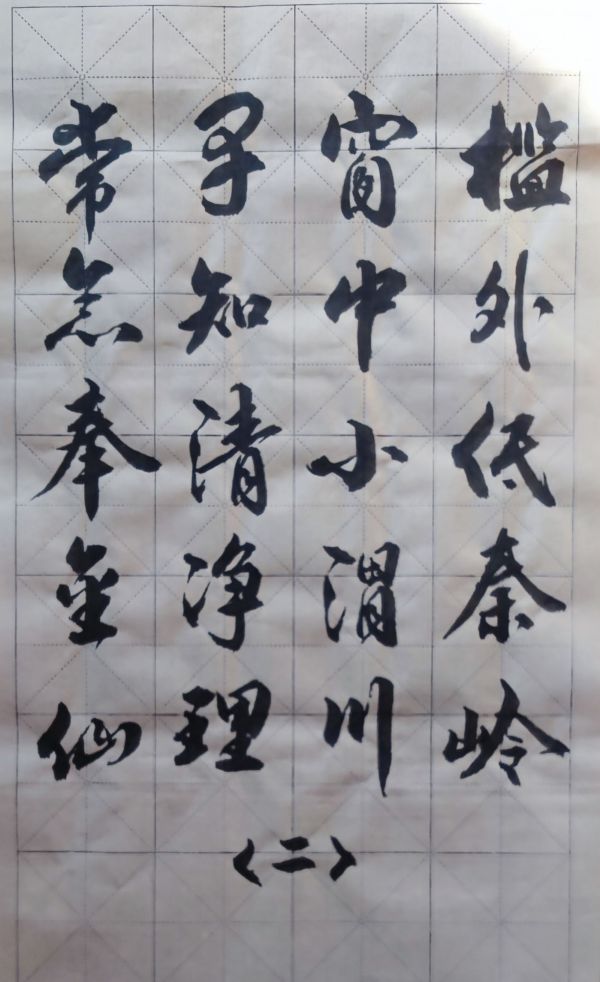 槛外低秦岭
窗中小渭川
早知清净理
常愿奉金仙
<二>